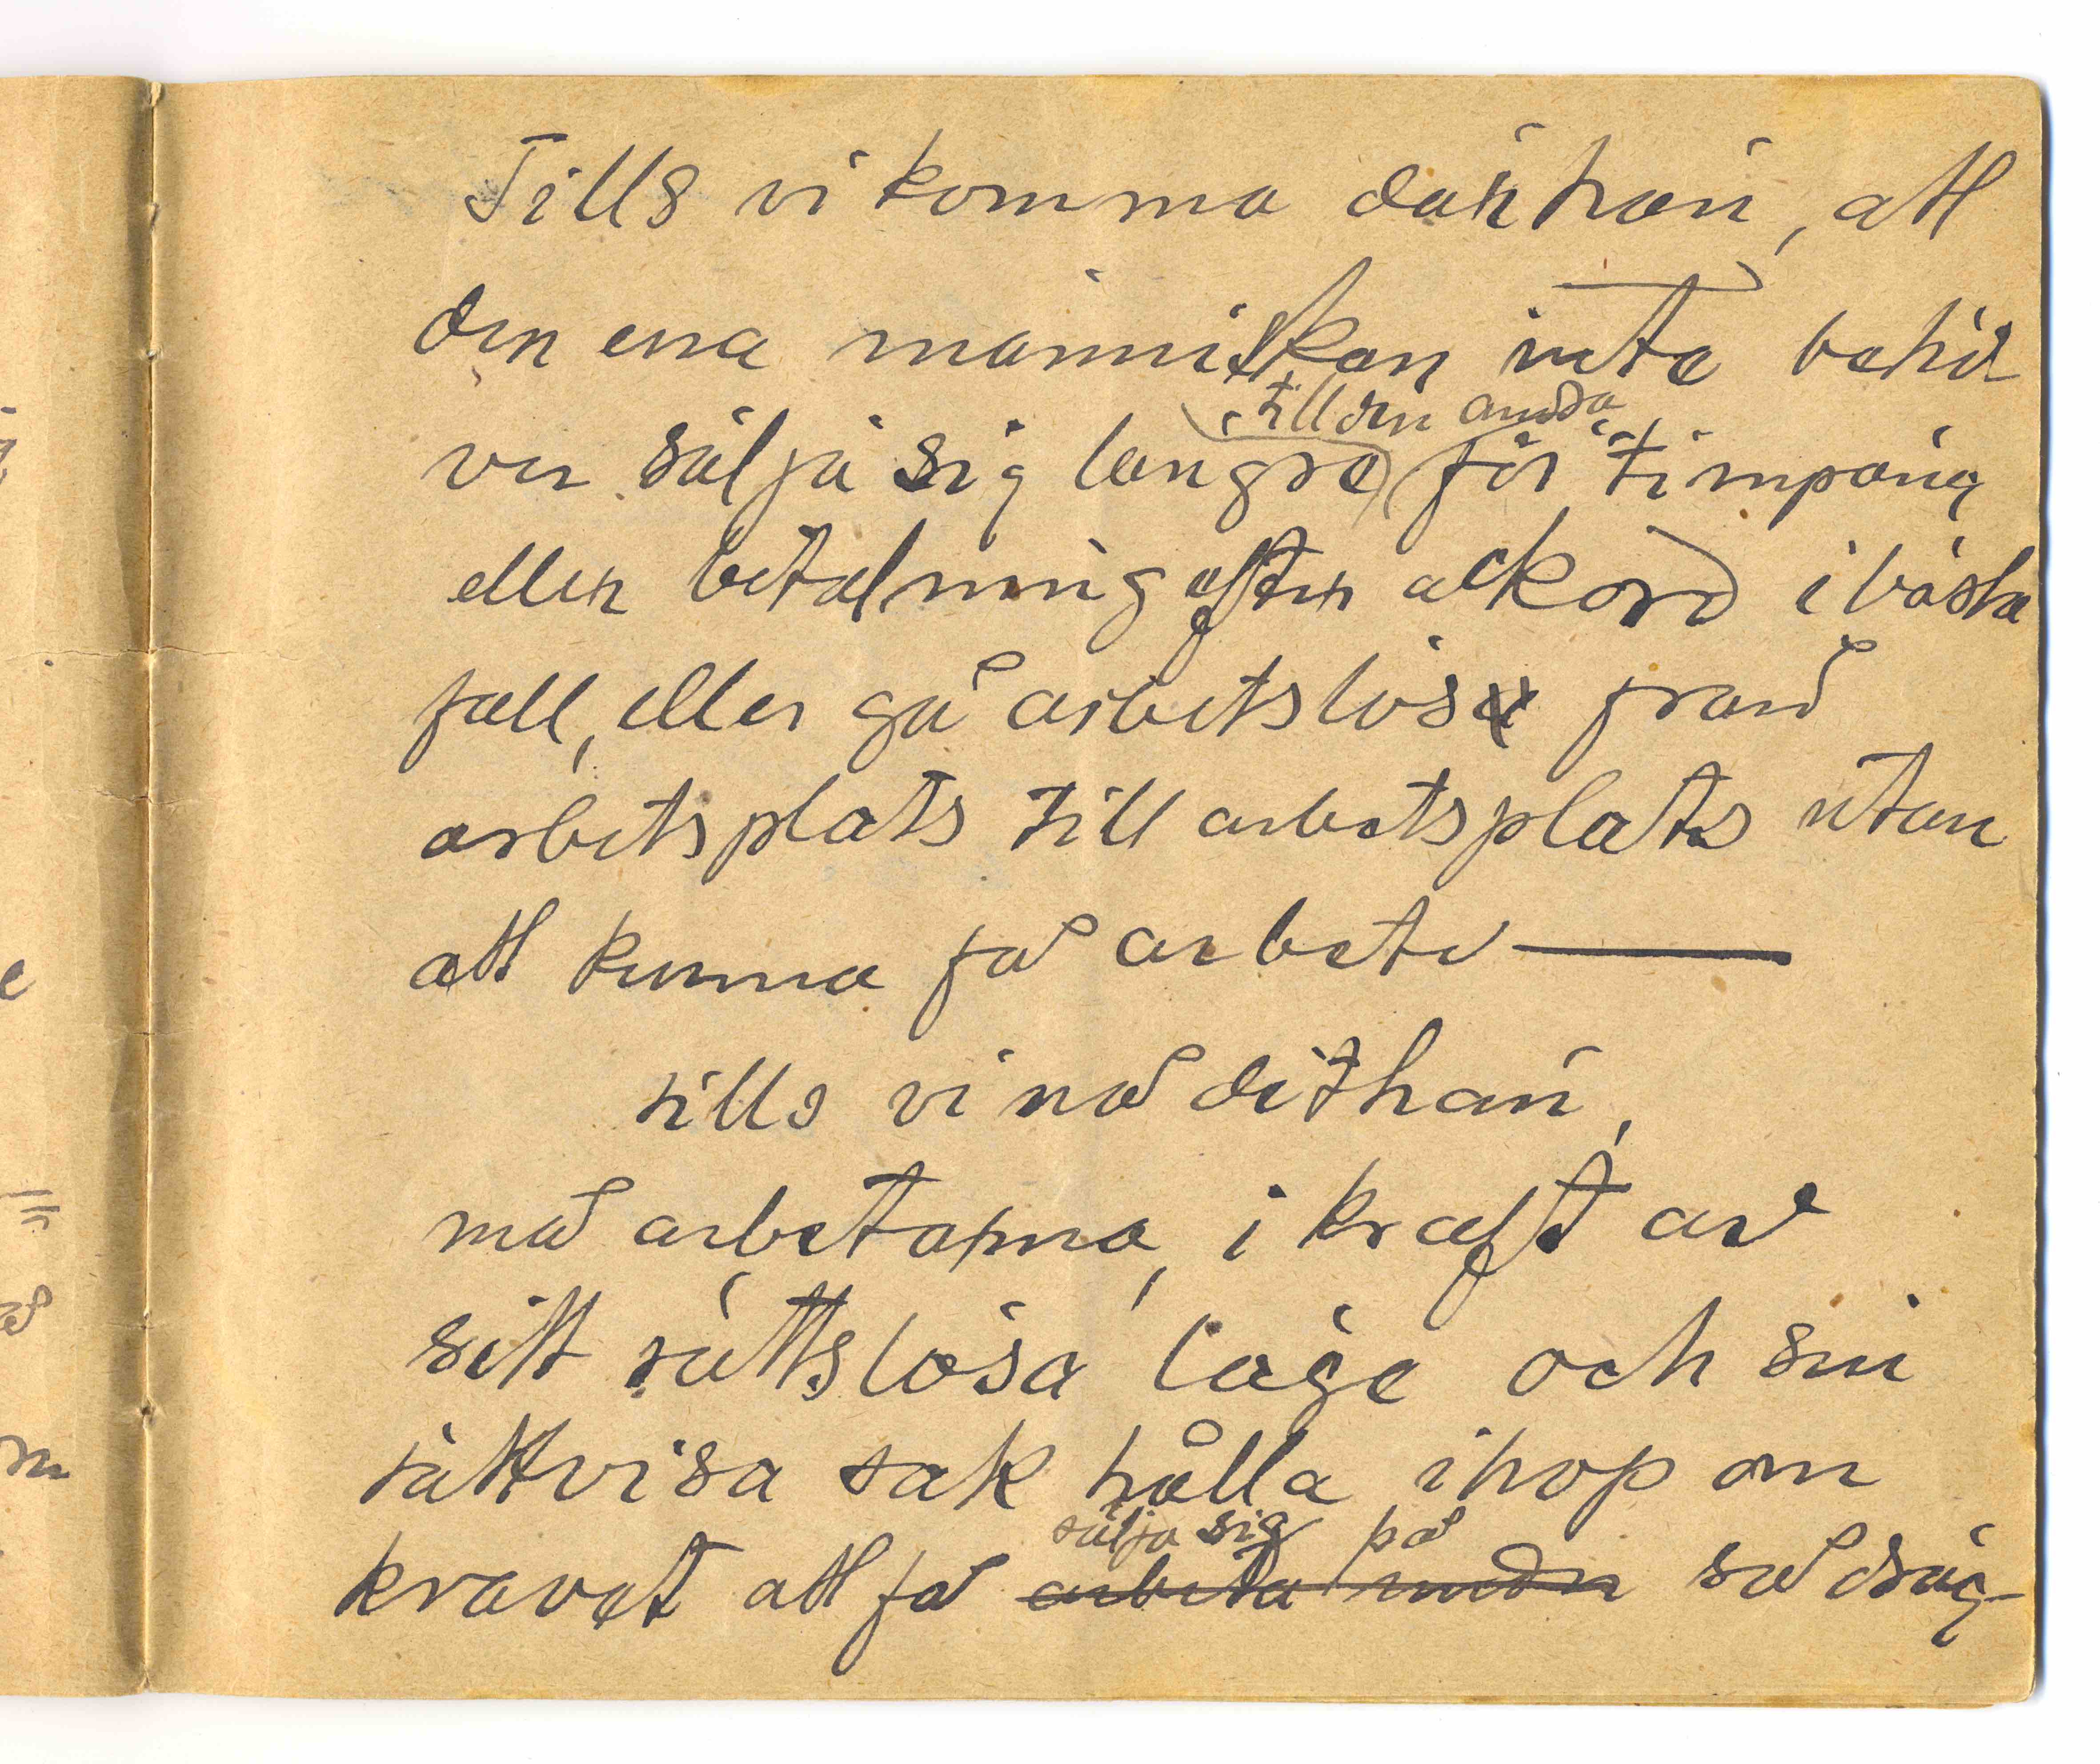 Tills vi komma därhän, att
den ena människan inte behö
ver sälja sig längre för timpäng
till den andra
eller betalning efter ackord i bästa
fall, eller gå arbetslös från
arbetsplats till arbetsplats utan
att kunna få arbete —
tills vi nå dithän,
må arbetarna, i kraft av
sitt rättslösa läge och sin
rättvisa sak hålla ihop om
sälja sig på
kravet att få arbeta under så dräg-